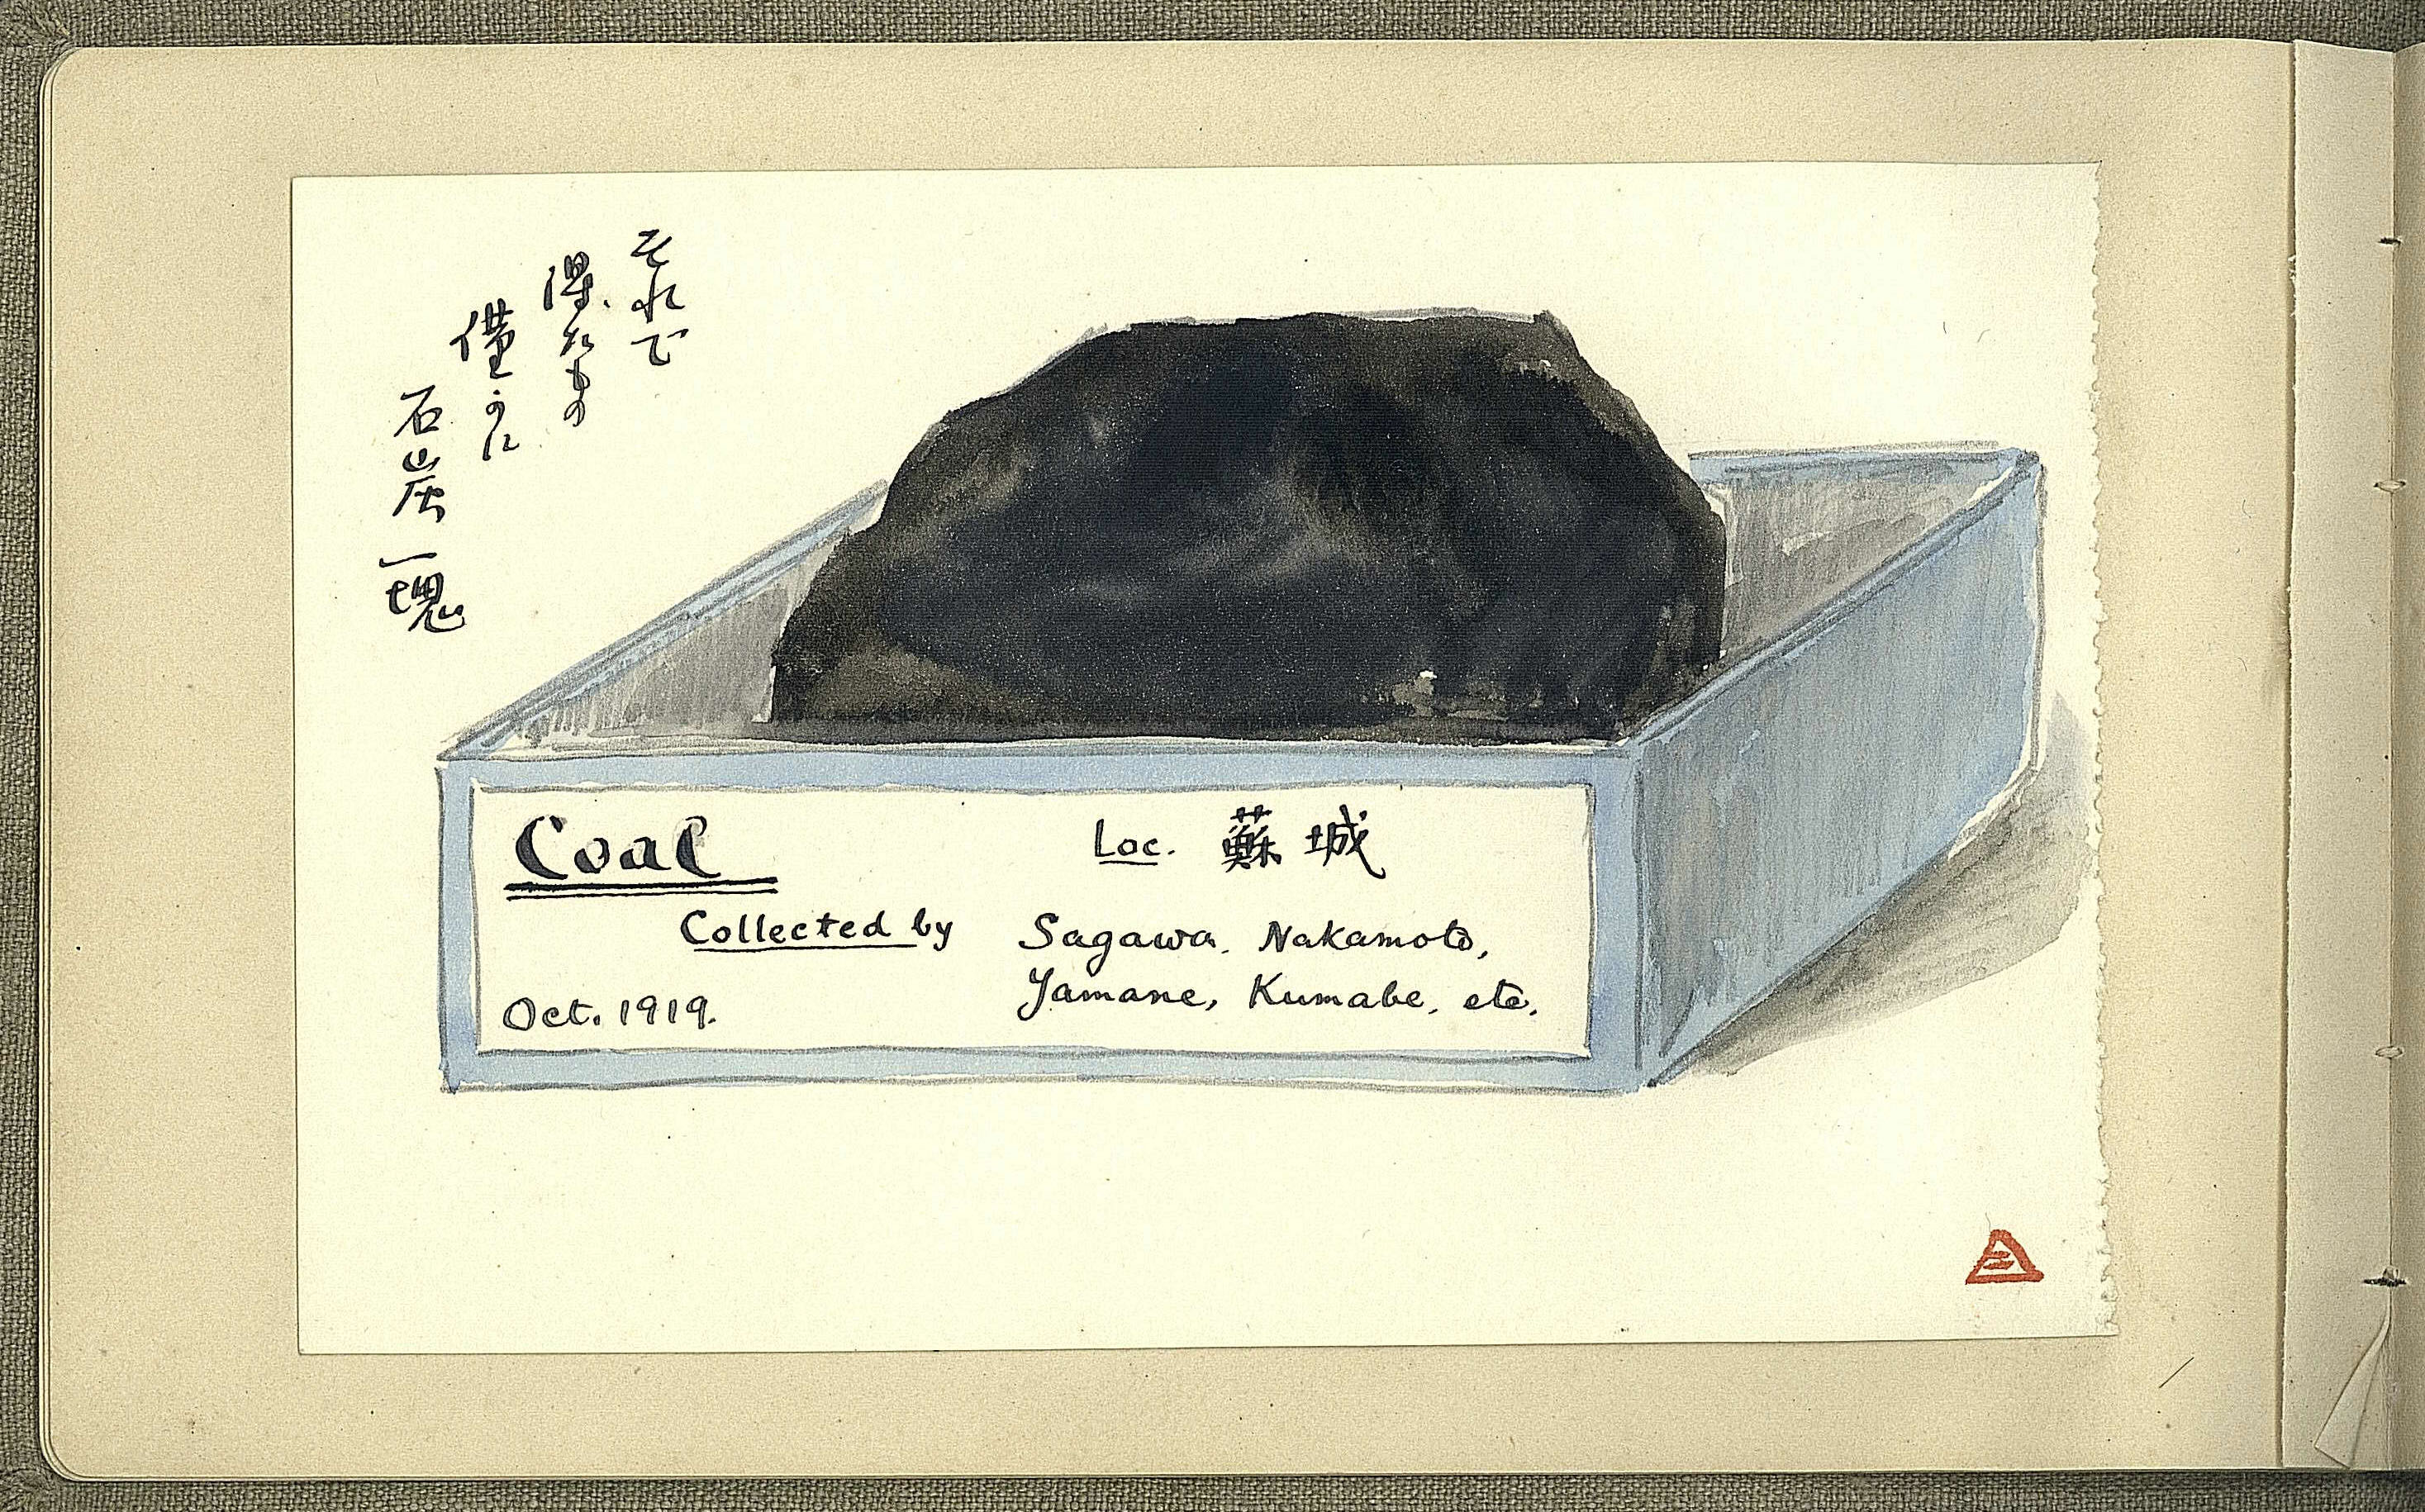 それで
得たもの
僅かに
石炭一塊
Coal
Loc. 蘇城
Collected by Sagawa. Nakamoto,
Yamane, Kumabe, etc.
Oct. 1919.